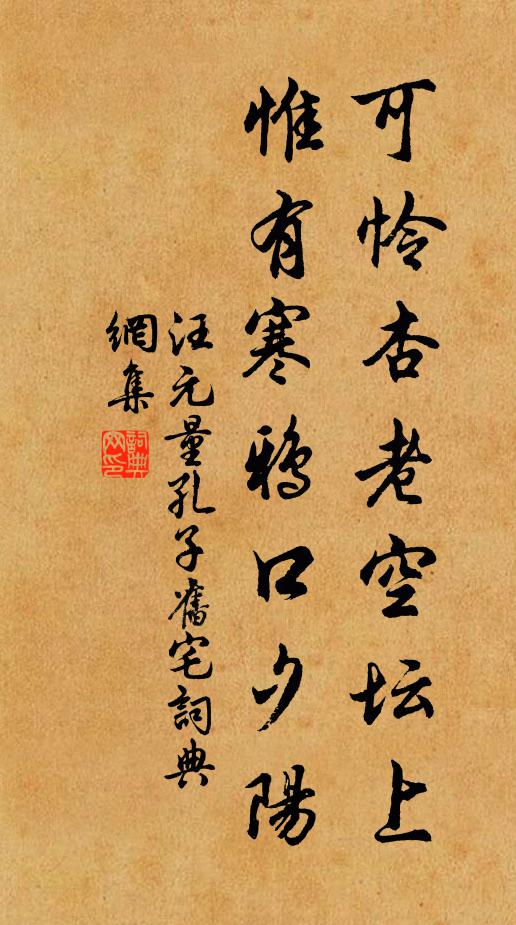 可怜杏老空坛上
惟有寒鸦口夕陽
汪元量孔子舊宅詞典
網集
詞典
网印